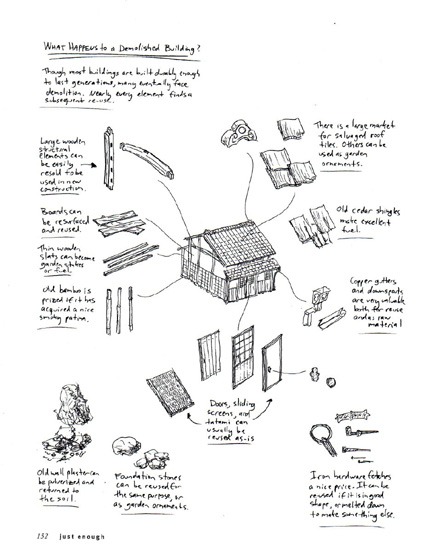 What Happens to a Demolished Building?
Though most buildings are built durably enough
to last generations, many eventually face
demolition. Nearly every element finds a
subsequent re-use.
Large wooden
structural
elements can
be easily
resold to be
used in new
construction.
There is a large market
for salvaged roof
tiles. Others can be
used as garden
ornaments.
Boards can
be resurfaced
and reused.
Old cedar shingles
make excellent
fuel.
Thin wooden
slats can become
garden stakes
or fuel.
Old bamboo is
prized if it has
acquired a nice
smoky patina.
Copper gutters
and downspouts
are very valuable
both for reuse
and as raw
material
Doors, sliding
screens, and
tatami can
usually be
reused as-is
Old wall plaster can
be pulverized and
returned to
the soil.
Foundation stones
can be reused for
the same purpose, or
as garden ornaments.
Iron hardware fetches
a nice price. It can be
reused if it is in good
shape, or melted down
to make something else.
152 just enough